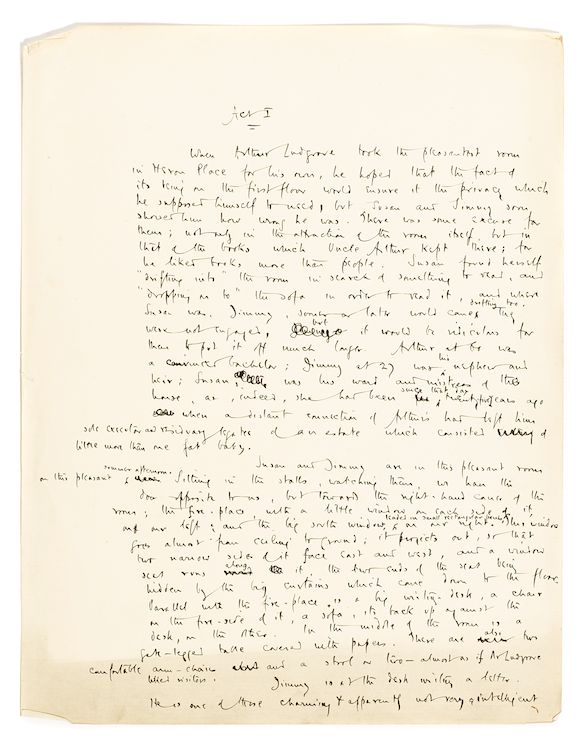 Act I
When Arthur Ludgrove took the pleasantest room
in Heron Place for his own, he hoped that the fact of
its being on the first floor would ensure it the privacy which
he supposed himself to need; but Susan and Jimmy soon
showed him how wrong he was. There was some excuse for
them; not only in the attraction of the room itself, but in
that of the books which Uncle Arthur kept there; for
he liked books more than people. Susan found herself
"drifting into" the room in search of something to read, and
"dropping on to" the sofa in order to read it, and where
Susan was, Jimmy, sooner or later would come drifting too. They
were not engaged, but it would be ridiculous for
them to put it off much longer. Arthur at 60 was
a bachelor; Jimmy at 27 was his nephew and
heir; Susan, was his ward and mistress of the
house, as, indeed, she had been since that day twenty years ago
when a distant connection of Arthur's had left him
sole executor and residuary legatee of an estate which consisted of
little more than one fat baby.
Susan and Jimmy are in this pleasant room
on this pleasant summer afternoon. Sitting in the stalls, watching them, we have the
door opposite to us, but toward the right-hand corner of the
room; the fire-place, with a little window on each side of it,
on our left; and the big south window, leaded in small rectangular panels, on our right. This window
goes almost from ceiling to ground; it projects out, so that
two narrow sides of it face east and west, and a window
seat runs along it, the two ends of the seat being
hidden by the big curtains which come down to the floor.
Parallel with the fire-place is a big writing-desk, a chair
on the fire-side of it, a sofa, its back up against the
desk, on the other. In the middle of the room is a
gate-legged table covered with papers. There are also two
comfortable arm-chairs and a stool or two - almost as if Arthur Ludgrove
liked visitors. Jimmy is at the desk writing a letter.
He is one of those charming & apparently not very intelligent